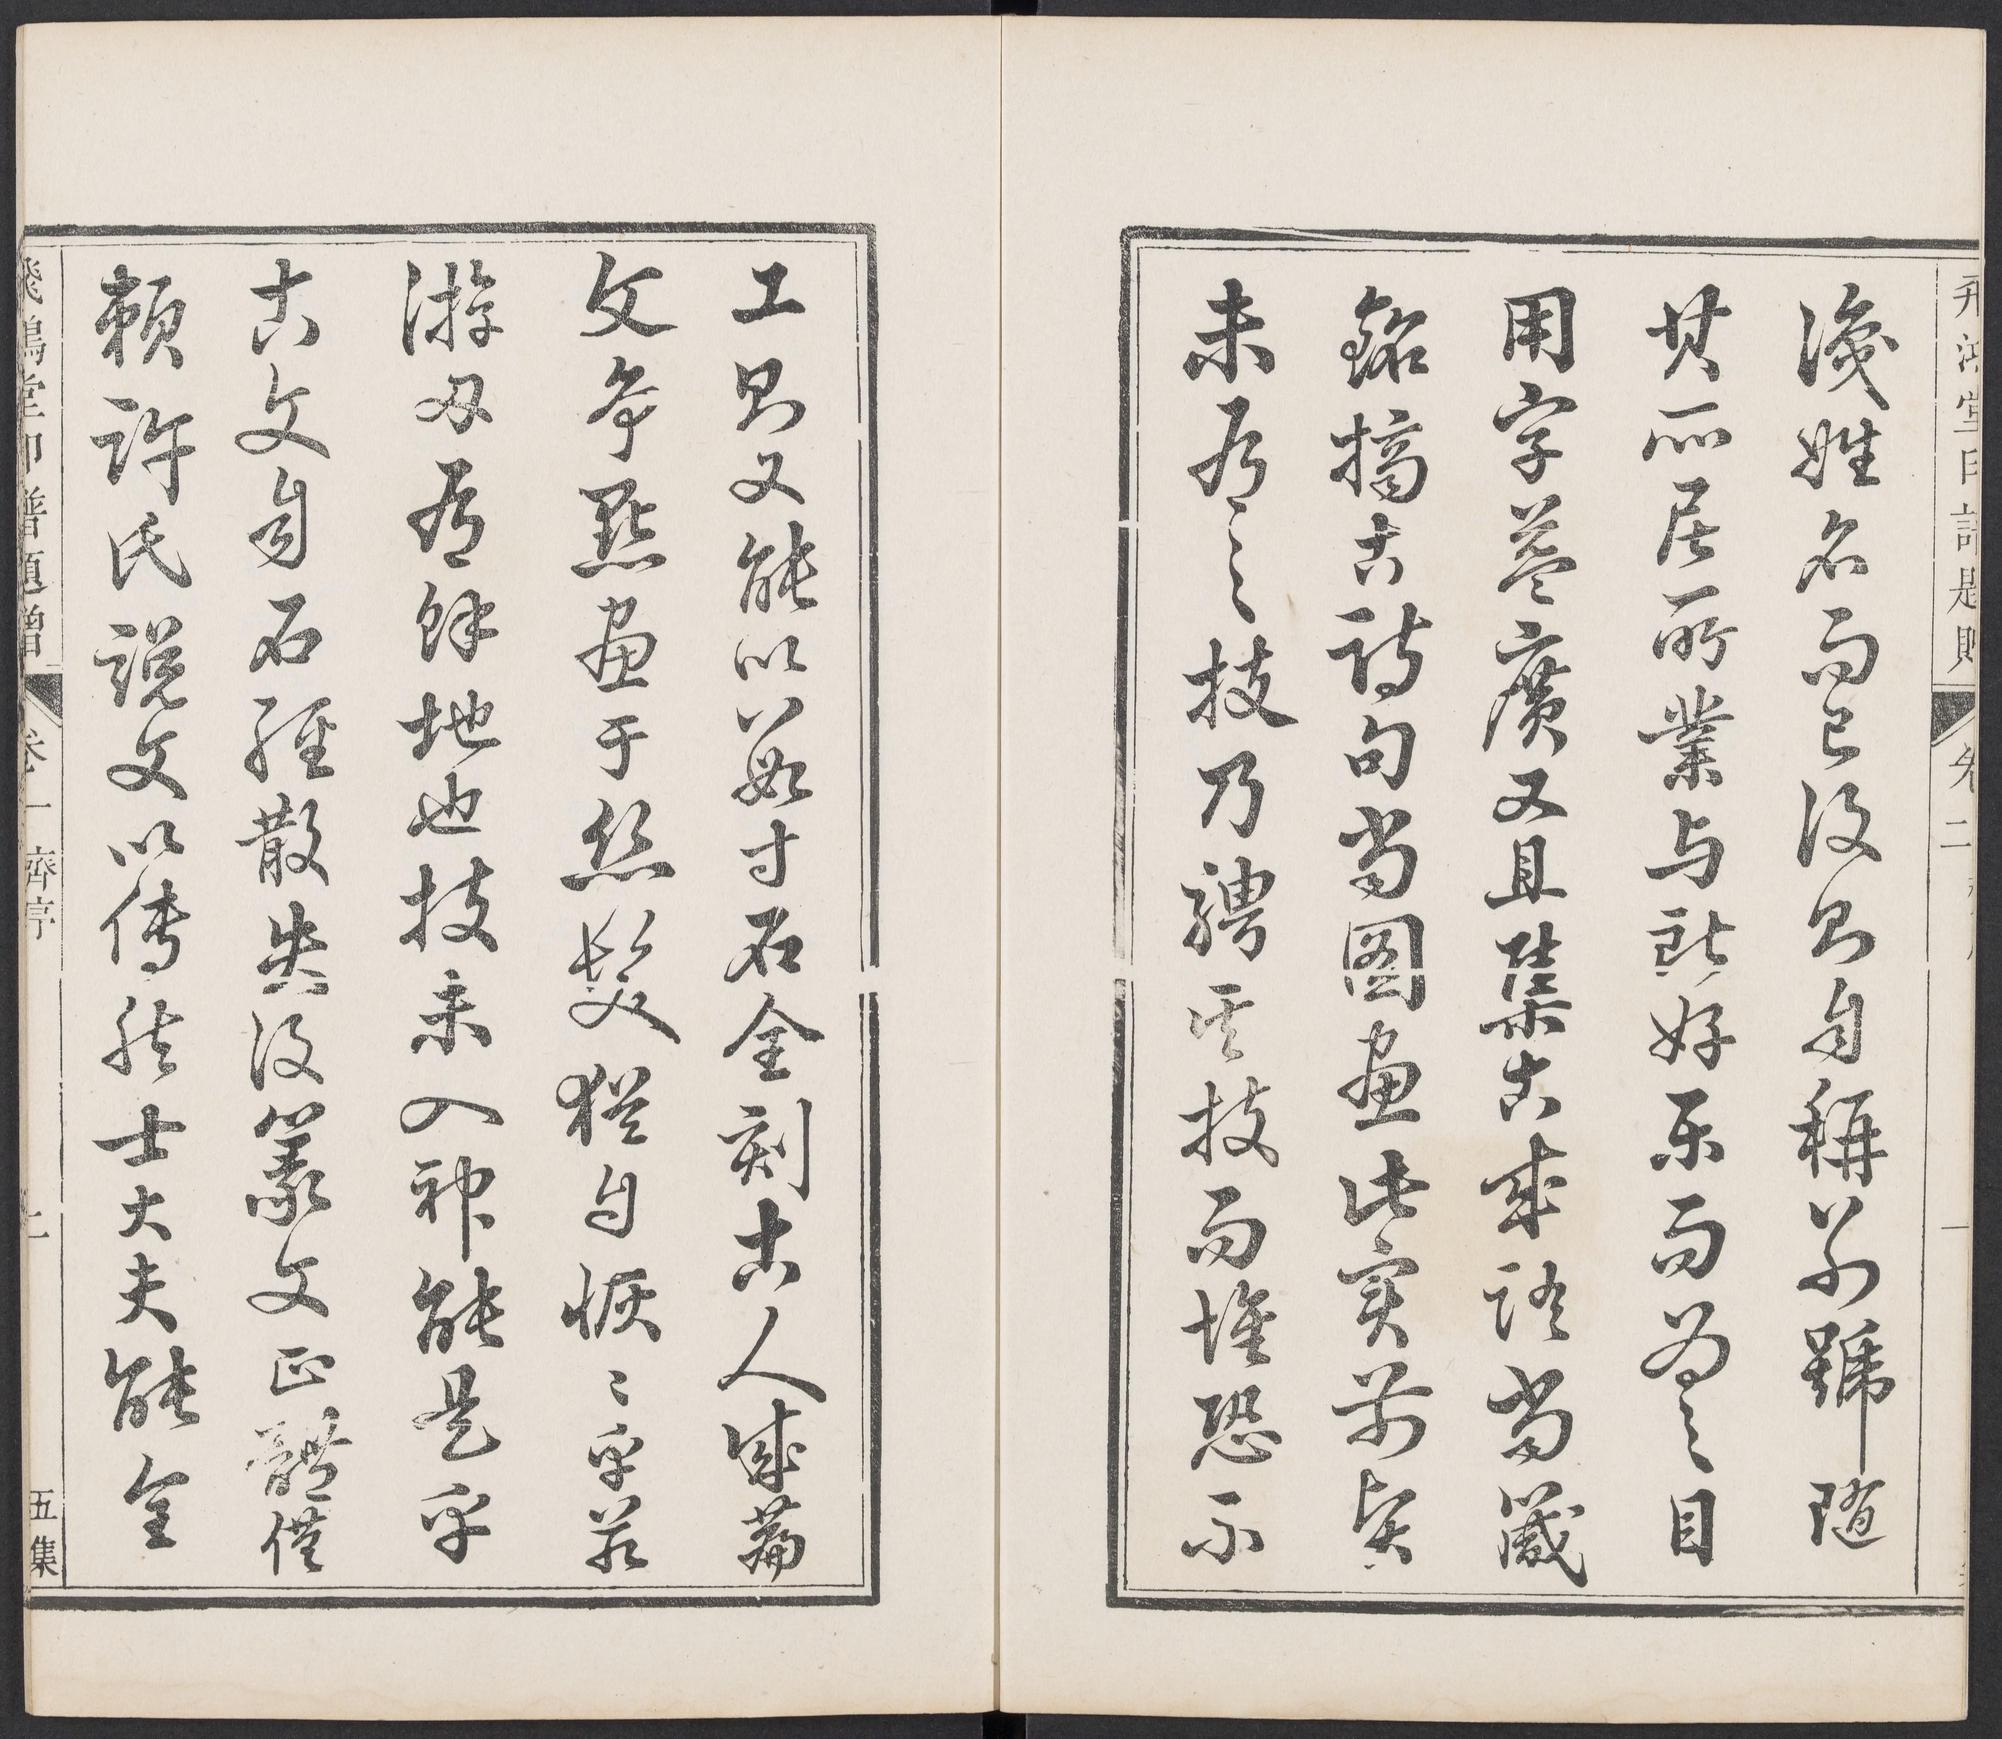 飛鴻堂印譜題贈 卷二 一
識姓名而已後則自稱别號隨
其所居所業与所好樂而為之目
用字益廣又且集古成語當箴
銘摘古詩句當圖畫此實前賢
未有之技乃騁其技而惟恐不
工則又能以數寸石全刻古人成篇
文爭點畫于絲髮猶自恢〻乎若
游刃有餘地也技未入神能是乎
古文自石經散失後篆文正體僅
賴許氏說文以傳然士大夫能全
飛鴻堂印譜題贈 齊序 二 五集